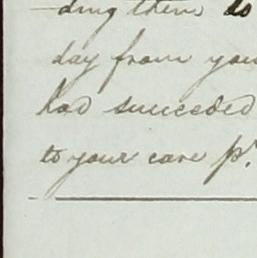 ding them to
day from you
had succeeded
to your care pr.